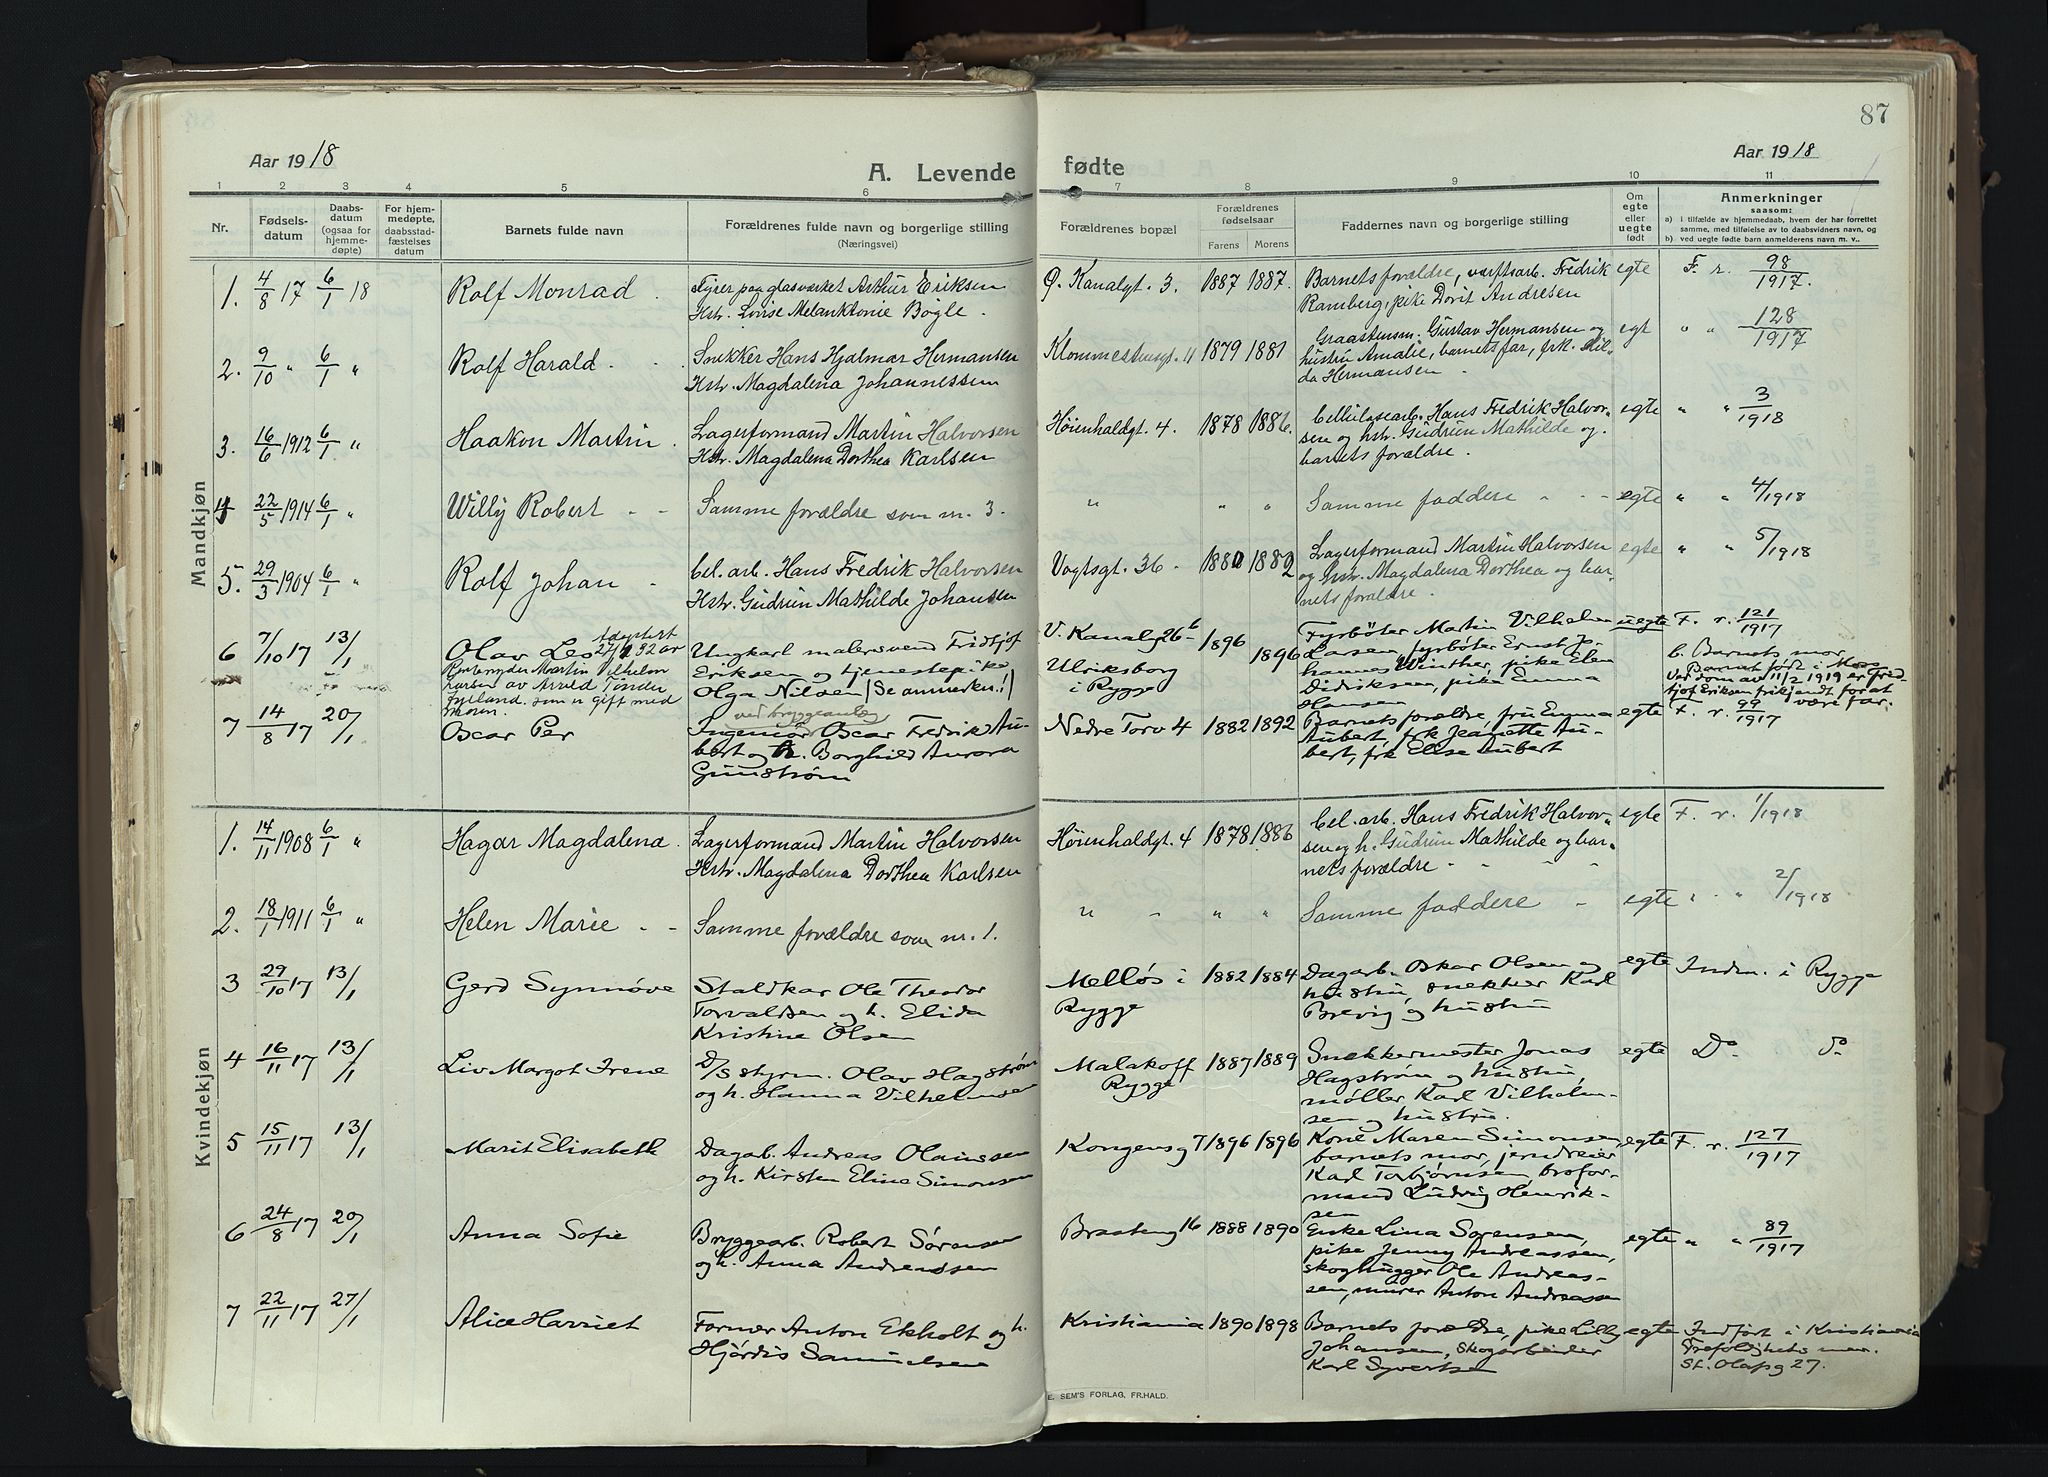 87
Aar 1918
A. Levende fødte
Aar 1918
1 2 3 4 5 6 7 8 9 10 11
Nr.
Fødsels-
datum
Daabs-
datum
(ogsaa for
hjemme-
døpte)
For hjem-
medøpte,
daabsstad-
fæstelses
datum
Barnets fulde navn
Forældrenes fulde navn og borgerlige stilling
(Næringsvei)
Forældrenes bopæl
Forældrenes
fødselsaar
Farens Morens
Faddernes navn og borgerlige stilling
Om
egte
eller
uegte
født
Anmerkninger
saasom:
a) i tilfælde av hjemmedaab, hvem der har forrettet
samme, med tilføielse av to daabsvidners navn, og
b) ved uegte fødte barn anmelderens navn m. v..
Mandkjøn
1. 4/8 17 6/1 18 Rolf Monrad
Fyrer paa glasverket Arthur Eriksen
Hstr. Lovise Melanktonie Bøgle.
Ø. Kanalgt. 3. 1887 1887.
Barnets forældre, verftsarb. Fredrik
Ramberg, pike Dorit Andresen
egte F. r. 98/1917.
2. 9/10 " 6/1 " Rolf Harald.
Snekker Hans Hjalmar Hermansen
Hstr. Magdalena Johannessen
11 1879 1881
Gustav Hermansen og
hustru Amalie, barnets far, frk. Hil-
da Hermansen.
egt " " 128/1917
3. 16/6 1912 6/1 " Haakon Martin.
Lagerformand Martin Halvorsen
Hstr. Magdalena Dorthea Karlsen
Høienhaldgt. 4. 1878 1886.
Cellulosearb. Hans Fredrik Halvor-
sen og hstr. Gudrun Mathilde og
barnets forældre.
egte " " 3/1918
4 22/5 1914 6/1 " Willy Robert
Samme forældre som nr. 3.
" " "
Samme faddere
egte " " 4/1918
5. 29/3 1904 6/1 Rolf Johan
Cel. arb. Hans Fredrik Halvorsen
Hstr. Gudrun Mathilde Johansen
Vogtsgt. 36. 1880 1882
Lagerformand Martin Halvorsen
og hstr. Magdalena Dorthea og bar-
nets forældre.
egte " " 5/1918
6 7/10 17 13/1 Olav Leo
Adoptert
Martin Vilhelm
Larsen av Arvild Tønder
som er gift med
moren.
Ungkarl malersvend Fridtjof
Eriksen og tjenestepike
Olga Nilsen (Se anmerkn.!)
V. Kanalg 26 b
Ulriksborg
i Rygge
1896
1896
Fyrbøter Martin Vilhelm
Larsen, fyrbøter Ernst Jo-
hannes Winther, pike Elen
Didriksen, pike Emma
Hansen
uegte F. r. 121/1917
b. Barnets mor
Barnet født i Moss
Ved dom av 11/2 1919 er Fred-
tjof Eriksen frikjendt for at
være far.
7 14/8 17 20/1 Oscar Per
ved bryggeanlæg
Ingeniør Oscar Fredrik Au-
bert og h. Borghild Aurora
Gunstrøm
Nedre Torv 4 1882 1892
Barnets forældre, fru Emma
Aubert, frk Jeanette Au-
bert, frk Elise Aubert
egte F. r. 99/1917
Kvindekjøn
1. 14/11 1908 6/1 " Hagar Magdalena.
Lagerformand Martin Halvorsen
Hstr. Magdalena Dorthea Karlsen
Høienhaldgt. 4 1878 1886
Cel. arb. Hans Fredrik Halvor-
sen og h. Gudrun Mathilde og bar-
nets forældre
egte F. r. 1/1918
2. 18/1 1911 6/1 " Helen Marie
Samme forældre som nr. 1.
" " " "
Samme faddere
egte " " 2/1918
3 29/10 17 13/1 Gerd Synnøve
Staldkar Ole Theodor
Torvaldsen og h. Elida
Kristine Olsen
Melløs i
Rygge
1882 1884
Dagarb. Oskar Olsen og
hustru, snekker Karl
Brevig og hustru
egte Indm. i Rygge
4 16/11 17 13/1 Liv Margot Irene
D/S styrm. Olav Hagstrøm
og h. Hanna Vilhelmsen
Malakoff
Rygge
1887 1889
Snekkermester Jonas
Hagstrøm og hustru,
møller Karl Vilhelm-
sen og hustru.
egte Do. do
5 15/11 17 13/1 Marit Elisabeth
Dagarb. Andreas Olaussen
og h. Kirsten Eline Simonsen
Kongensg 7 1896 1896
Kone Maren Simonsen,
barnets mor, jerndreier
Karl Torbjørnsen, brofor-
mand Ludvig Henrik-
sen
egte F. r. 127/1917
6 24/8 17 20/1 Anna Sofie
Bryggearb. Robert Sørensen
og h. Anna Andreassen
16 1888 1890
Enke Lina Sørensen,
pike Jenny Andreassen,
skoghugger Ole Andreas-
sen, murer Anton Andreassen
egte " " 89/1917
7 22/11 17 27/1 Alice Harriet
Former Anton Ekholt og h.
Hjørdis Samuelsen
Kristiania 1890 1898
Barnets forældre, pike Lilly
Johansen, skogarbeider
Karl Syvertsen
egte Indført i Kristiania
St. Olafsg 27.
E. SEM'S FORLAG, FR.HALD.